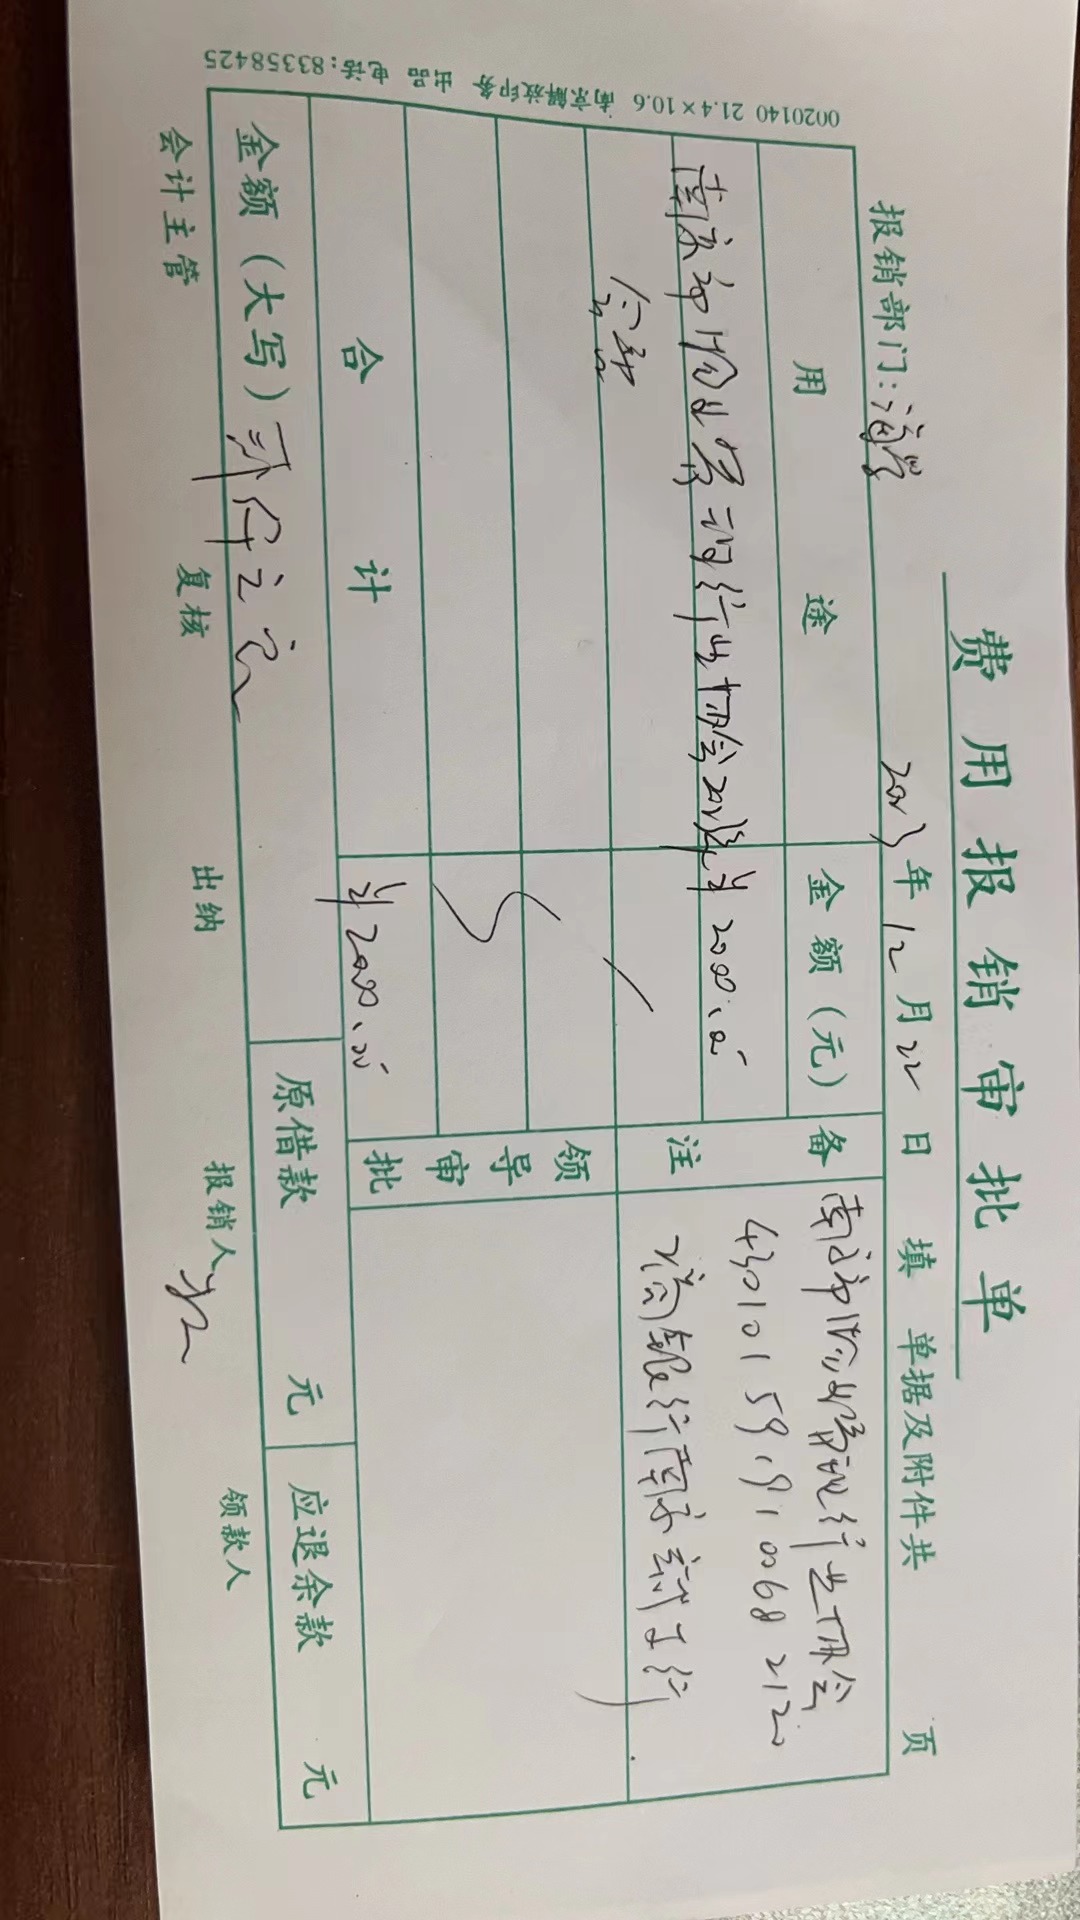 费用报销审批单
报销部门:
2023年12月22日填 单据及附件共 页
用途 金额(元) 备注
南京市物业管理行业协会2023年 ¥2000.00
会费
南京市物业管理行业协会
4301015919100682120
行南京
领导审批
合计 ¥2000.00
金额(大写)贰仟元 原借款 元 应退余款 元
会计主管 复核 出纳 报销人 领款人
0020140 21.4×10.6 南京解放印务 出品 电话:83358425